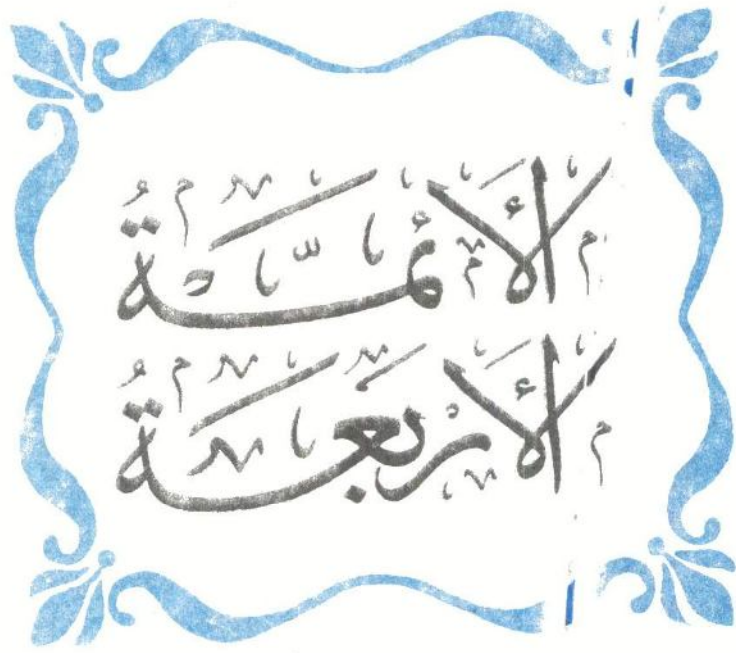 الأئمَّةُ
الأربَعَةُ